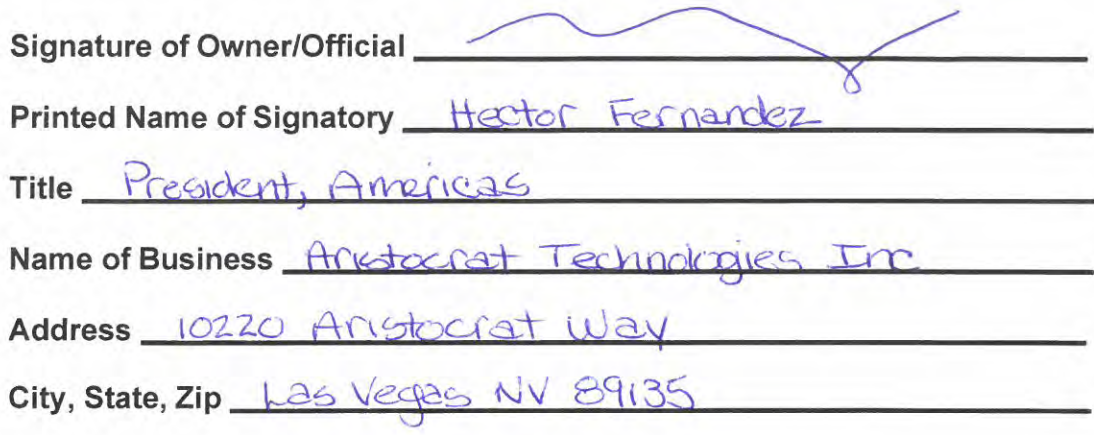 Signature of Owner/Official
Printed Name of Signatory Hector Fernandez
Title President, Americas
Name of Business Aristocrat Technologies Inc
Address 10220 Aristocrat Way
City, State, Zip Las Vegas NV 89135